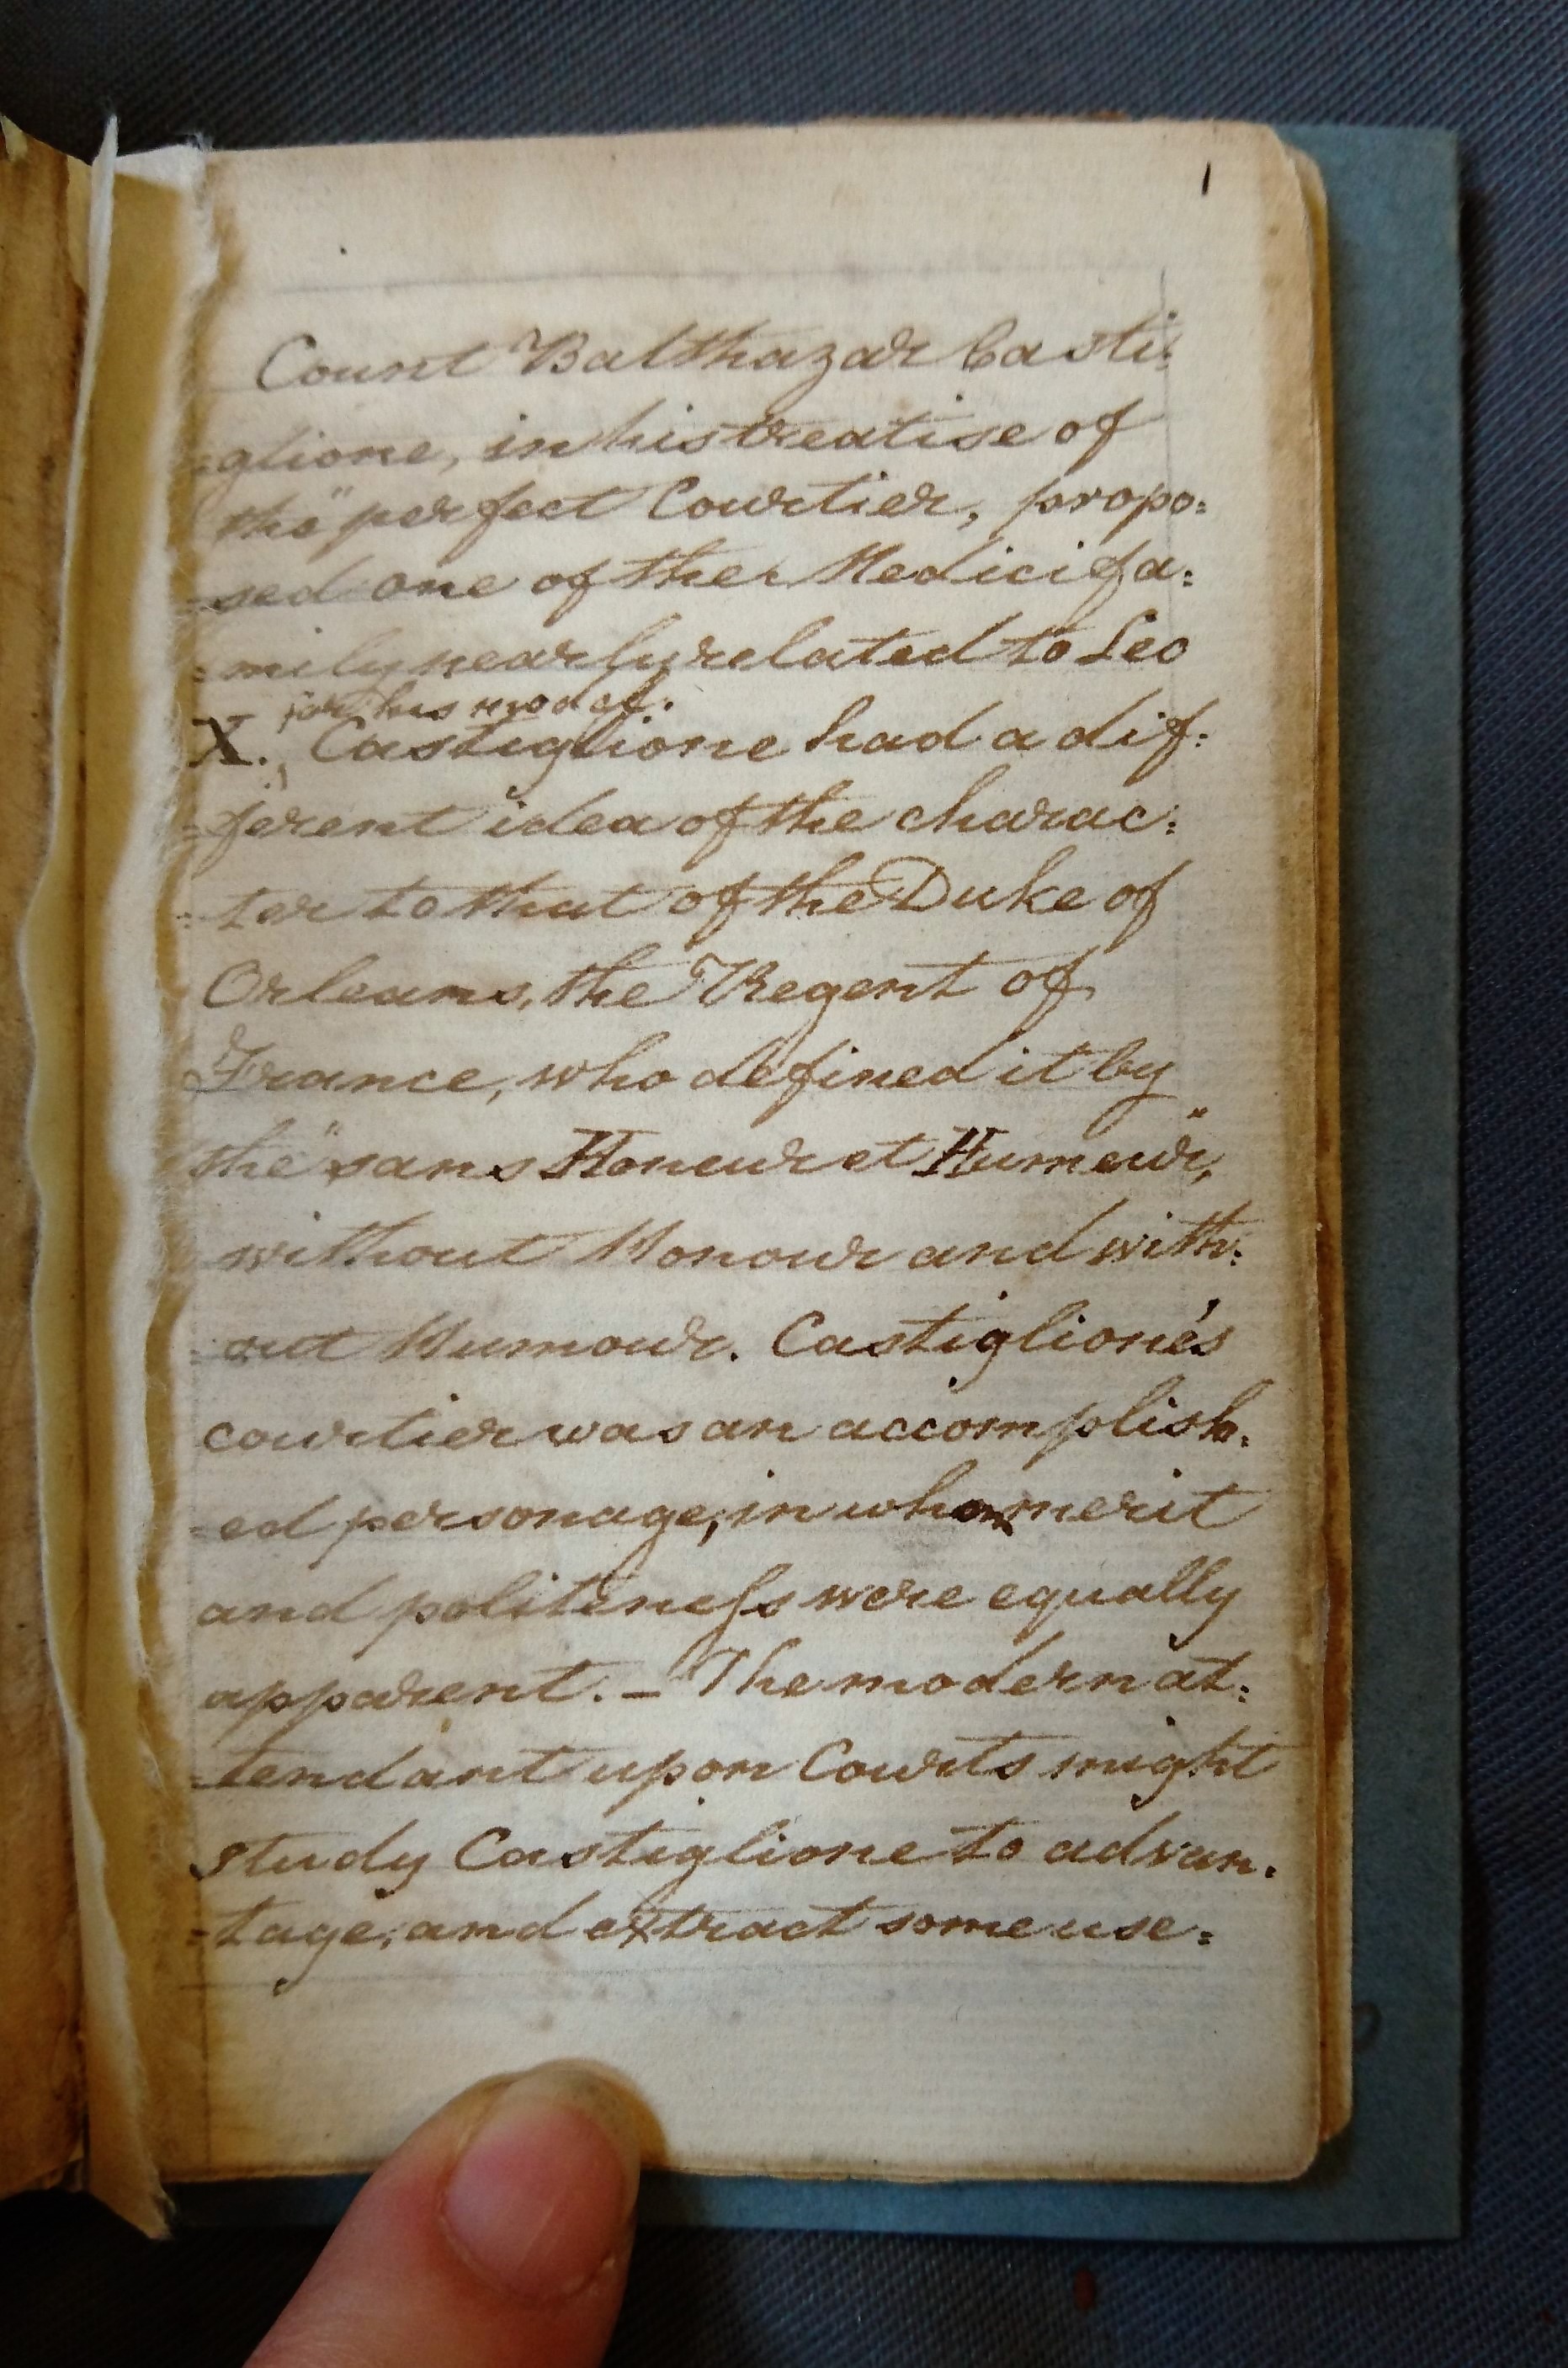 1
Count Balthazar Casti:
=glione, in his treatise of
the "perfect Courtier, propo:
=sed one of the Medici fa:
=mily nearly related to Leo
for his model.
X., Castiglione had a dif:
=ferent idea of the charac:
=ter to that of the Duke of
Orleans, the Regent of
France, who defined it by
the "sans Honeur et Humeur",
without Honour and with:
=out Humour. Castiglione's
courtier was an accomplish:
=ed personage, in whom merit
and politeneſs were equally
apparent. _ The modern at:
=tendant upon Courts might
study Castiglione to advan:
=tage, and extract some use: